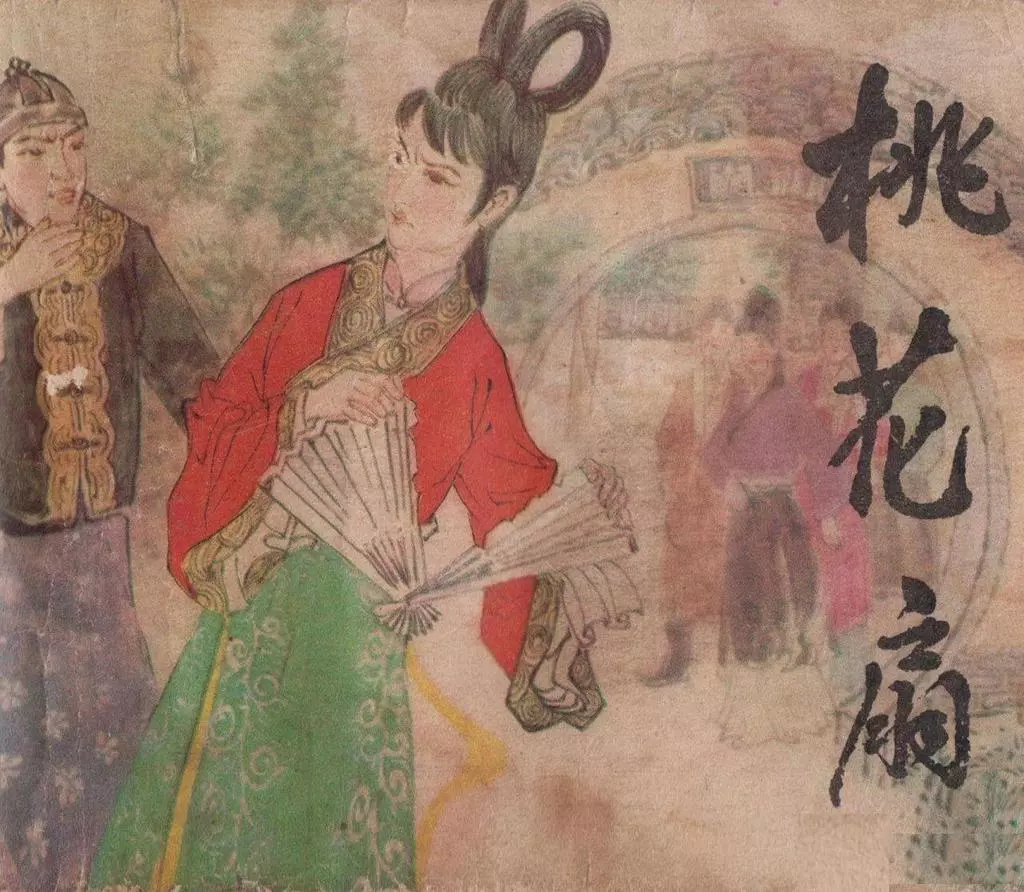 桃花扇